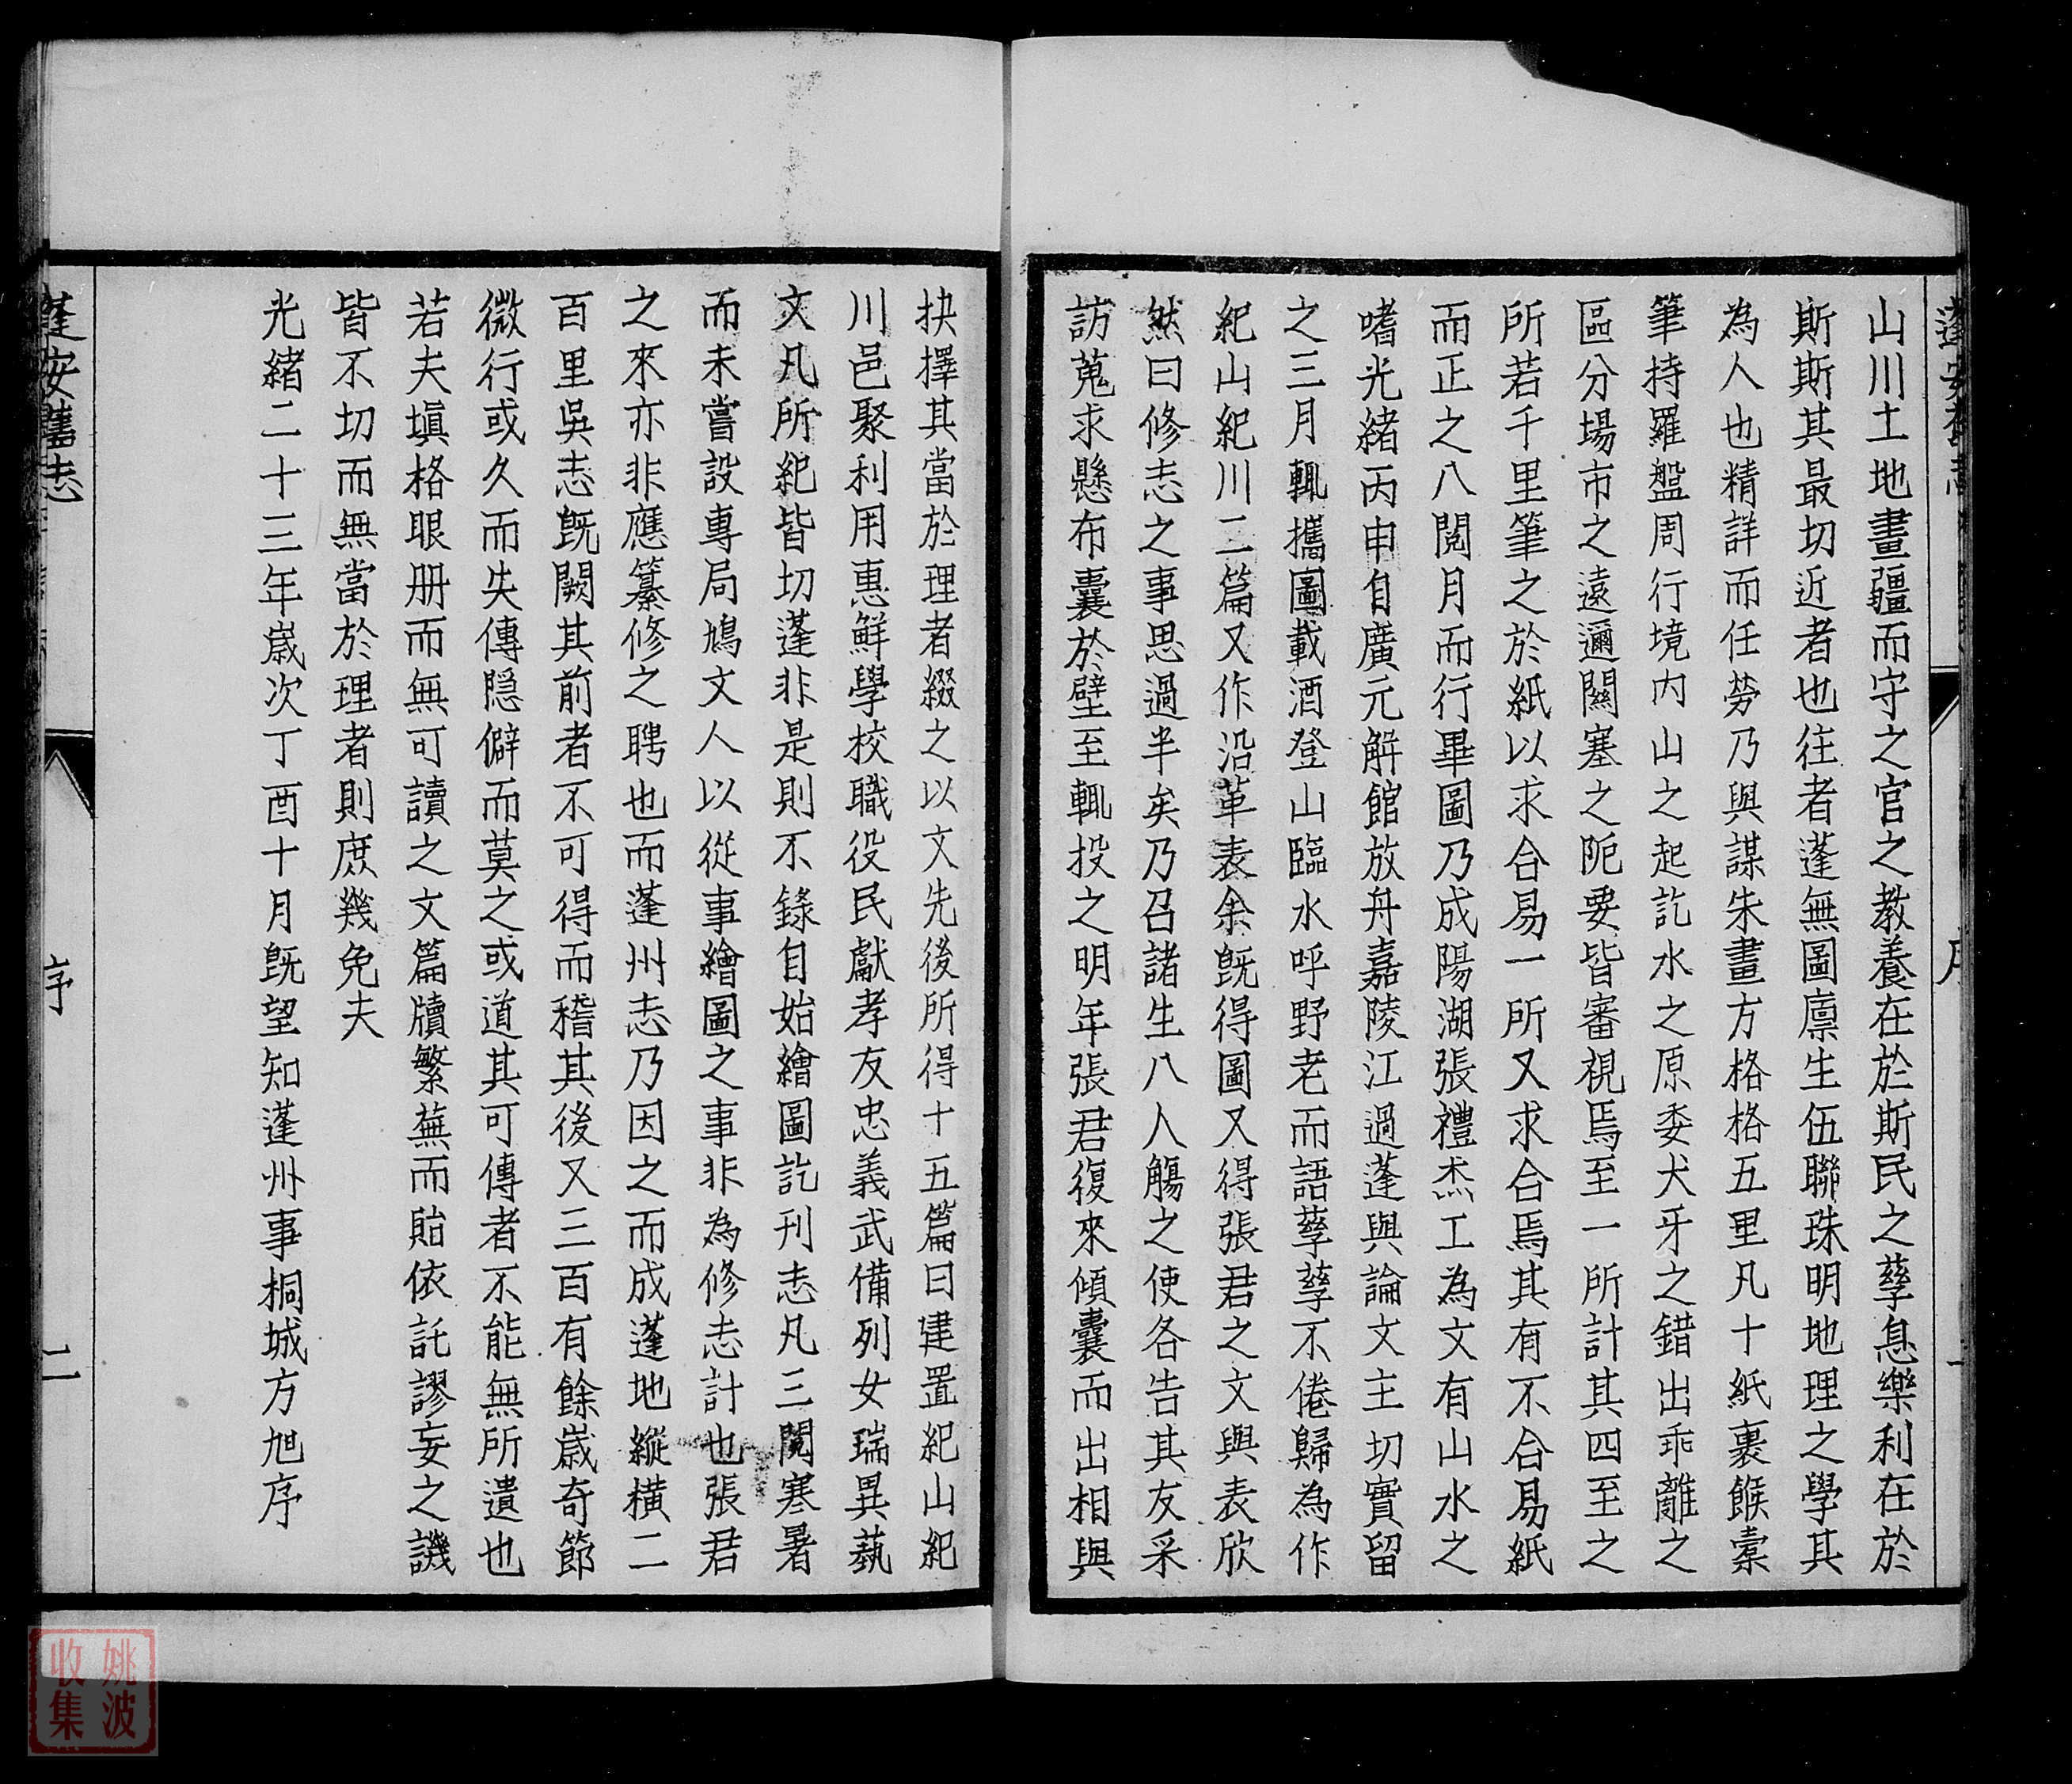 山川土地畫疆而守之官之教養在於斯民之孳息樂利在於
斯斯其最切近者也往者蓬無圖廪生伍聯珠明地理之學其
為人也精詳而任勞乃與謀朱畫方格格五里凡十紙裹餱橐
筆持羅盤周行境内山之起訖水之原委犬牙之錯出乖離之
區分場市之遠邇關塞之阨要皆審視焉至一所計其四至之
所若千里筆之於紙以求合易一所又求合焉其有不合易紙
而正之八閱月而行畢圖乃成陽湖張禮杰工為文有山水之
嗜光緒丙申自廣元解館放舟嘉陵江過蓬與論文主切實留
之三月輒攜圖載酒登山臨水呼野老而語孳孳不倦歸為作
紀山紀川二篇又作沿革表余既得圖又得張君之文與表欣
然曰修志之事思過半矣乃召諸生八人觴之使各告其友采
訪蒐求懸布囊於壁至輒投之明年張君復來傾囊而出相與
抉擇其當於理者綴之以文先後所得十五篇曰建置紀山紀
川邑聚利用惠鮮學校職役民獻孝友忠義武備列女瑞異蓺
文凡所紀皆切蓬非是則不錄自始繪圖訖刊志凡三閱寒暑
而未嘗設專局鳩文人以從事繪圖之事非為修志計也張君
之來亦非應纂修之聘也而蓬州志乃因之而成蓬地縱橫二
百里吳志既闕其前者不可得而稽其後又三百有餘歲奇節
微行或久而失傳隱僻而莫之或道其可傳者不能無所遺也
若夫塡格眼册而無可讀之文篇牘繁蕪而貽依託謬妄之譏
皆不切而無當於理者則庶幾免夫
光緒二十三年歲次丁酉十月既望知蓬州事桐城方旭序
蓬安舊志
序
二
姚波
收集